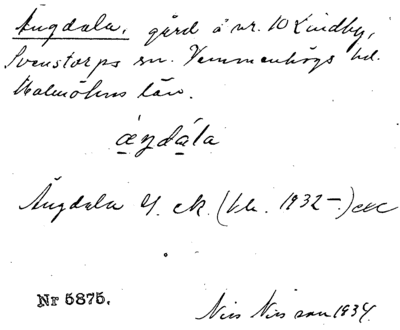 Ängdala, gård å nr. 10 Lindby,
Svenstorps sn. Vemmenhögs hd.
Malmöhus län.
æŋdala
Ängdala Y. ek. (bl. 1932-.)
Nr 5875.
Nils Nilsson 1934.